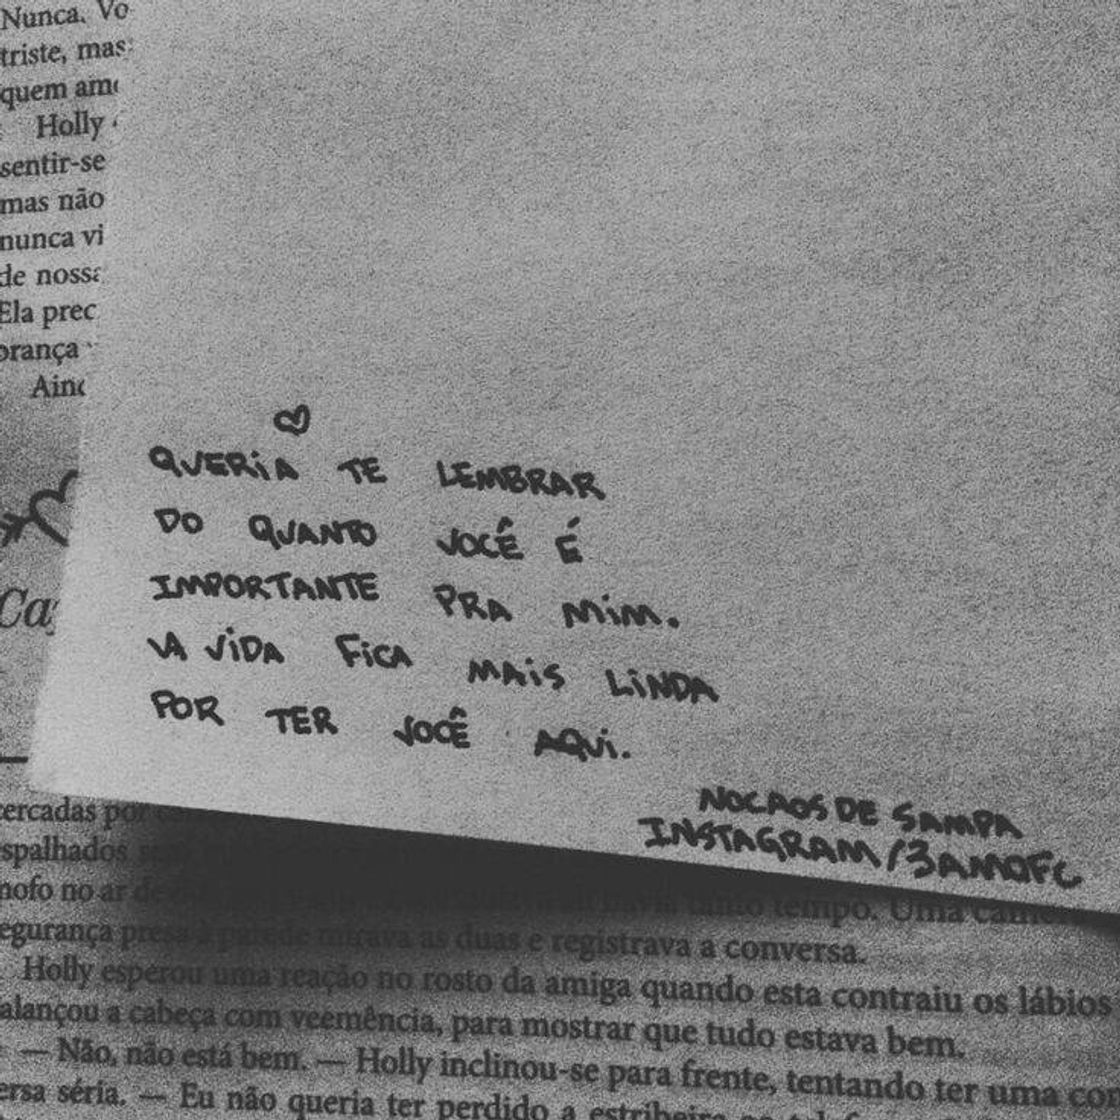 Nunca. Vo
triste, mas
quem am
Holly
sentir-se
mas não
nunca vi
de nossa
Ela prec
brança
Aind
QUERIA TE LEMBRAR
DO QUANTO VOCÊ É
IMPORTANTE PRA MIM.
A VIDA FICA MAIS LINDA
POR TER VOCÊ AQUI.
NOCAOS DE SAMPA
INSTAGRAM/3AMOFC
cercadas por
spalhados
mofo no ar de tanto tempo. Uma
egurança presa à parede mirava as duas e registrava a conversa.
Holly esperou uma reação no rosto da amiga quando esta contraiu os lábios
alançou a cabeça com veemência, para mostrar que tudo estava bem.
— Não, não está bem. — Holly inclinou-se para frente, tentando ter uma co
ersa séria. — Eu não queria ter perdido a estribeira